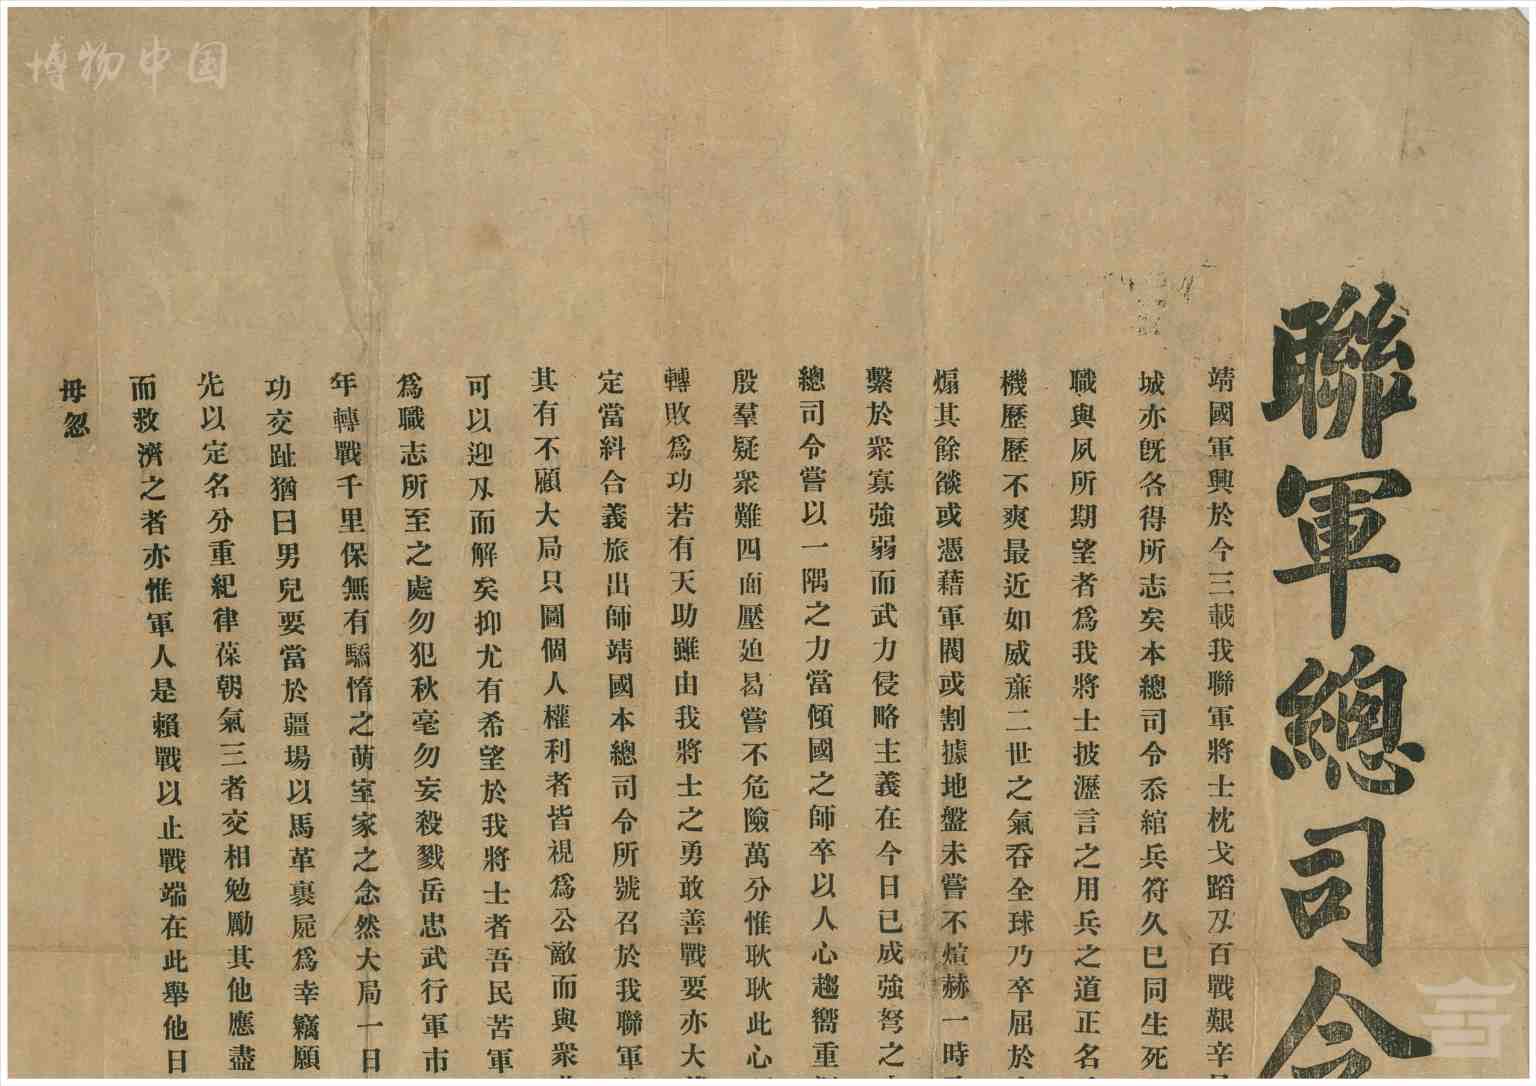 博物中国
聯軍總司令
靖國軍興於今三載我聯軍將士枕戈蹈刃百戰艱辛
城亦旣各得所志矣本總司令忝綰兵符久已同生死
職與夙所期望者爲我將士披瀝言之用兵之道正名
機歷歷不爽最近如威亷二世之氣吞全球乃卒屈於
煽其餘燄或憑藉軍閥或割據地盤未嘗不煊赫一時
繫於衆寡強弱而武力侵略主義在今日已成強弩之
總司令嘗以一隅之力當傾國之師卒以人心趨嚮重
殷羣疑衆難四面壓廹曷嘗不危險萬分惟耿耿此心
轉敗爲功若有天助雖由我將士之勇敢善戰要亦大
定當糾合義旅出師靖國本總司令所號召於我聯軍
其有不顧大局只圖個人權利者皆視爲公敵而與衆
可以迎刃而解矣抑尤有希望於我將士者吾民苦軍
爲職志所至之處勿犯秋毫勿妄殺戮岳忠武行軍市
年轉戰千里保無有驕惰之萌室家之念然大局一日
功交趾猶曰男兒要當於疆場以馬革裹屍爲幸竊願
先以定名分重紀律葆朝氣三者交相勉勵其他應盡
而救濟之者亦惟軍人是賴戰以止戰端在此舉他日
毋忽